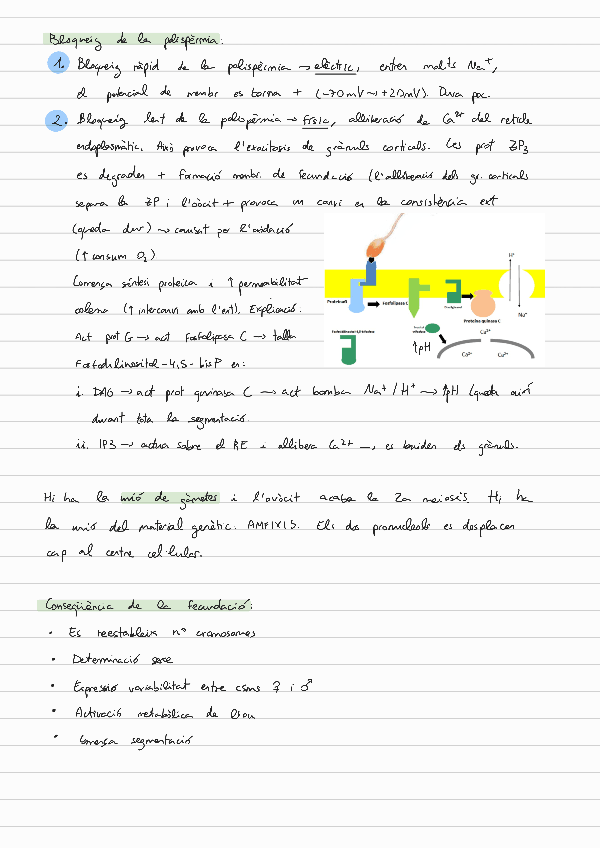 Bloqueig de la polispèrmia:
1. Bloqueig ràpid de la polispèrmia → elèctric, entren molts Na⁺,
el potencial de membr es torna + (-70mV → +20mV). Dura poc.
2. Bloqueig lent de la polispèrmia → físic, alliberació de Ca²⁺ del reticle
endoplasmàtic. Això provoca l'exocitosis de grànuls corticals. Les prot ZP3
es degraden + formació membr. de fecundació (l'alliberació dels gr. corticals
separa la ZP i l'oòcit + provoca un canvi en la consistència ext
(queda dur) → causat per l'oxidació
(↑ consum O₂)
Comença síntesi proteica i ↑ permeabilitat
ovlema (↑ intercanvi amb l'ext). Explicació.
Act prot G → act fosfolipasa C → talla
Fosfatidilinositol-4,5-bisP en:
H⁺
ProteinaG
Fosfolipasa C
Proteina quinasa C
Na⁺
↑pH
Ca²⁺
Ca²⁺
Ca²⁺
i. DAG → act prot quinasa C → act bomba Na⁺/H⁺ → ↑pH (queda així
durant tota la segmentació.
ii. IP3 → actua sobre el RE i allibera Ca²⁺ →, es buiden els grànuls.
Hi ha la unió de gàmetes i l'ovòcit acaba la 2a meiosis. Hi ha
la unió del material genètic. AMFIXIS. Els dos pronuclis es desplacen
cap al centre cel·lular.
Conseqüència de la fecundació:
• Es reestableix nº cromosomes
• Determinació sexe
• Expressió variabilitat entre csms ♀ i ♂
• Activació metabòlica de l'ou
• Comença segmentació